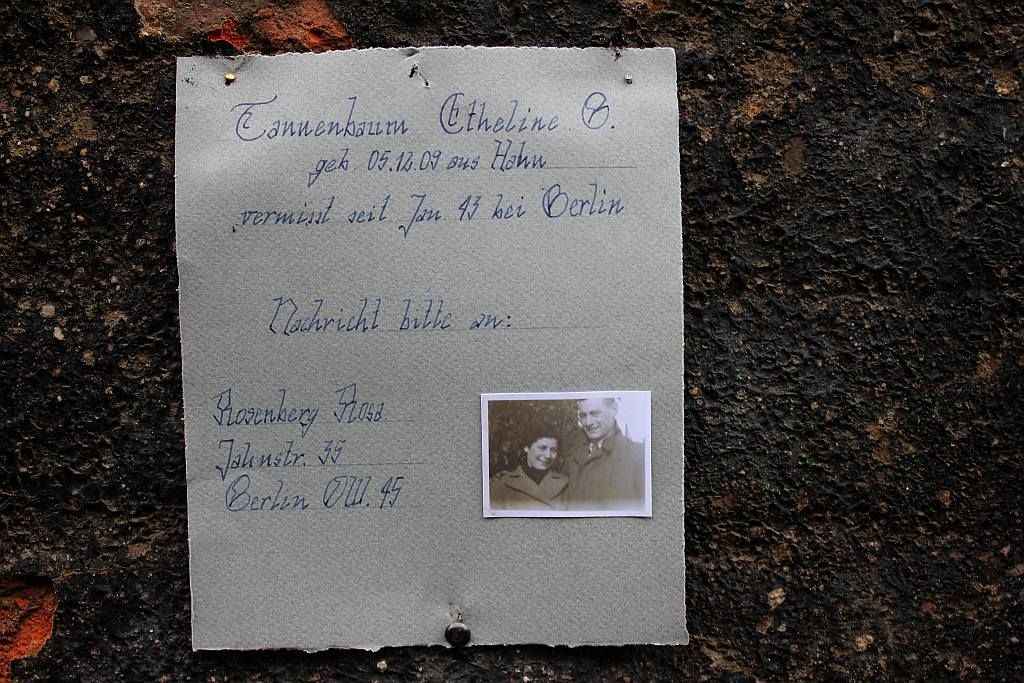 Tannenbaum Etheline G.
geb. 05.12.09 aus Hahn
vermisst seit Jan. 43 bei Berlin
Nachricht bitte an:
Rosenberg Rosa
Jahnstr. 35
Berlin OW. 45